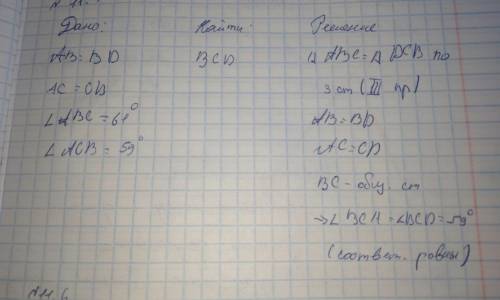 Дано:
AB = BD
AC = CD
∠ABC = 61°
∠ACB = 59°
Найти:
BCD
Решение
Δ ABC = Δ DCB по
3 ст (III пр)
AB = BD
AC = CD
BC - общ. ст
→ ∠BCA = ∠BCD = 59°
(соответ. равны)